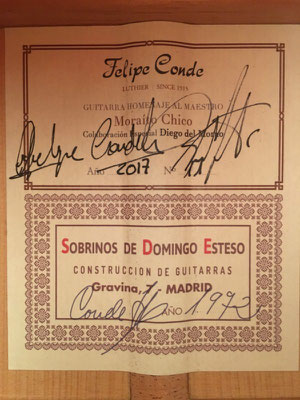 Felipe Conde
LUTHIER SINCE 1915
GUITARRA HOMENAJE AL MAESTRO
Moraíto Chico
Colaboración Especial Diego del Morao
Felipe Conde
Año 2017 Nº 11
SOBRINOS DE DOMINGO ESTESO
CONSTRUCCION DE GUITARRAS
Gravina, 7 MADRID
Conde AÑO 1.973